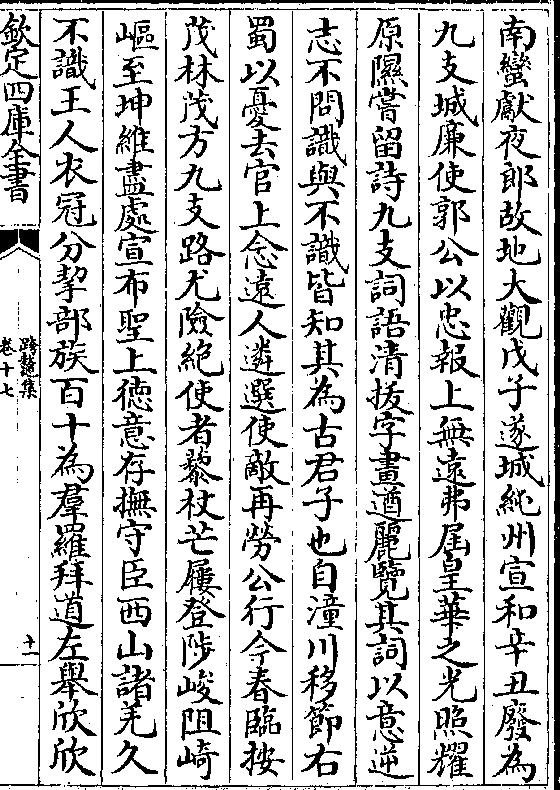 南蠻獻夜郎故地大觀戊子遂城純州宣和辛丑廢為
九支城廉使郭公以忠報上無遠弗屆皇華之光照耀
原隰嘗留詩九支詞語清拔字畫遒麗覽其詞以意逆
志不問識與不識皆知其為古君子也自潼川移節右
蜀以憂去官上念遠人遴選使敵再勞公行今春臨按
茂林茂方九支路尤險絕使者藜杖芒屨登陟峻阻崎
嶇至坤維盡處宣布聖上徳意存撫守臣西山諸羌久
不識王人衣冠分挈部族百十為羣羅拜道左舉欣欣
欽定四庫全書
跨鼇集
卷十七
十一